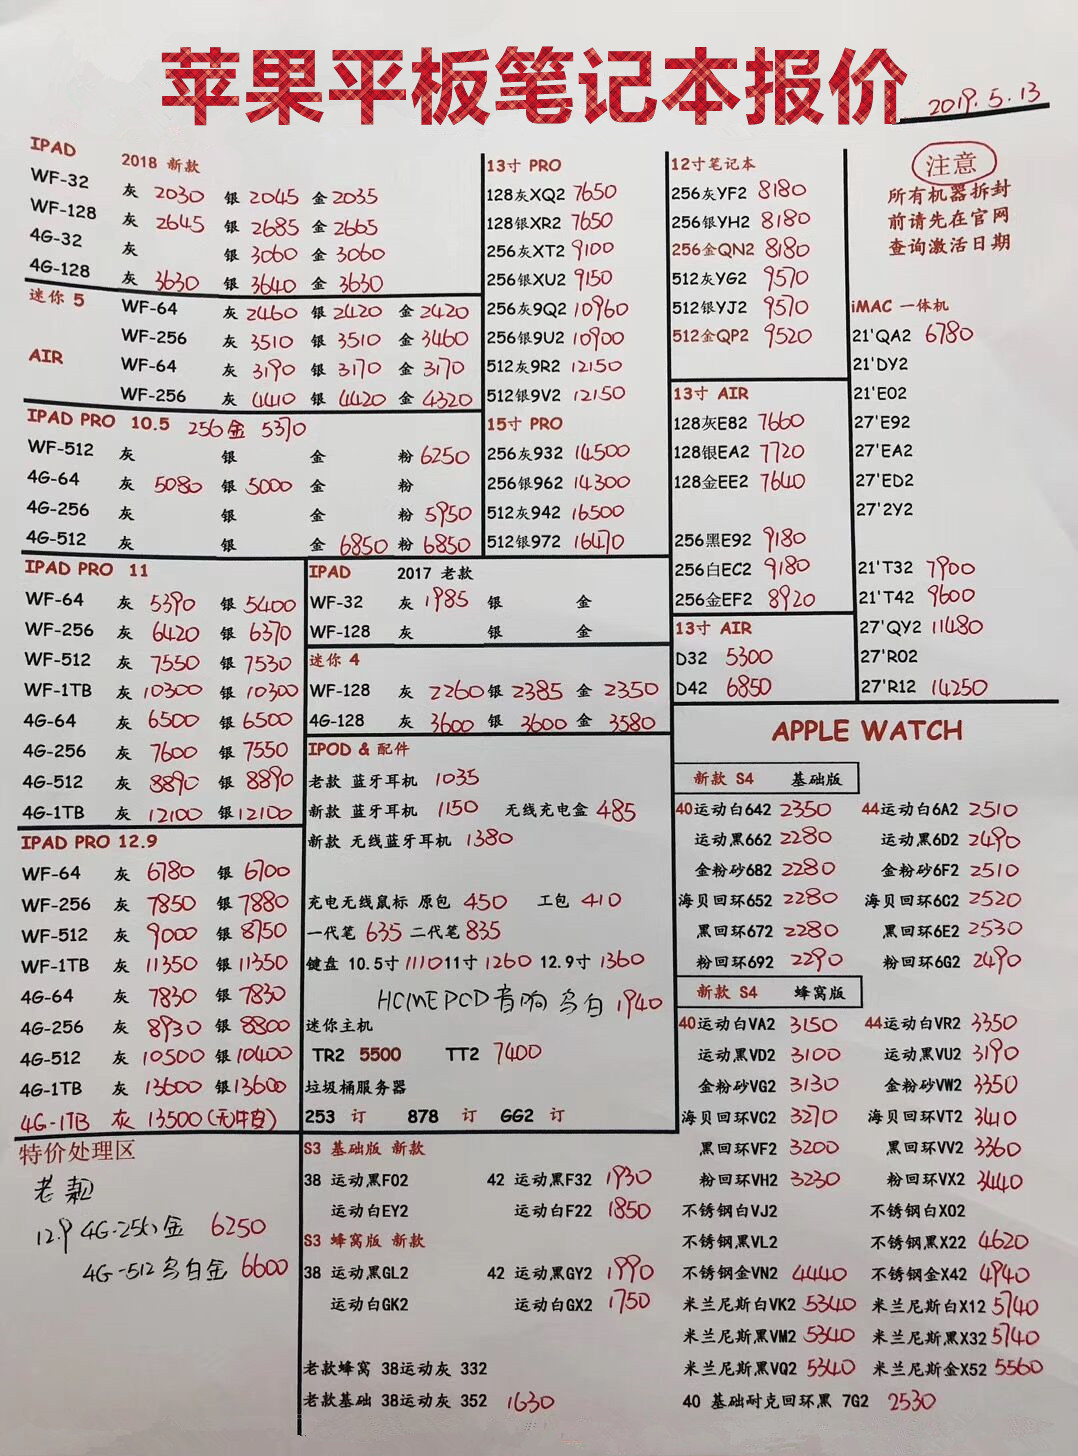 苹果平板笔记本报价
2019.5.13
IPAD 2018 新款
WF-32 灰 2030 银 2045 金 2035
WF-128 灰 2645 银 2685 金 2665
4G-32 灰 银 3060 金 3060
4G-128 灰 3630 银 3640 金 3630
迷你 5 WF-64 灰 2460 银 2420 金 2420
WF-256 灰 3510 银 3510 金 3460
AIR WF-64 灰 3190 银 3170 金 3170
WF-256 灰 4410 银 4420 金 4320
IPAD PRO 10.5 256金 5370
WF-512 灰 银 金 粉 6250
4G-64 灰 5080 银 5000 金 粉
4G-256 灰 银 金 粉 5950
4G-512 灰 银 金 6850 粉 6850
IPAD PRO 11
WF-64 灰 5390 银 5400
WF-256 灰 6420 银 6370
WF-512 灰 7550 银 7530
WF-1TB 灰 10300 银 10300
4G-64 灰 6500 银 6500
4G-256 灰 7600 银 7550
4G-512 灰 8890 银 8890
4G-1TB 灰 12100 银 12100
IPAD PRO 12.9
WF-64 灰 6780 银 6700
WF-256 灰 7850 银 7880
WF-512 灰 9000 银 8750
WF-1TB 灰 11350 银 11350
4G-64 灰 7830 银 7830
4G-256 灰 8930 银 8800
4G-512 灰 10500 银 10400
4G-1TB 灰 13600 银 13600
4G-1TB 灰 13500
特价处理区
老款
12.9 4G-256金 6250
4G-512 乌白金 6600
13寸 PRO
128灰XQ2 7650
128银XR2 7650
256灰XT2 9100
256银XU2 9150
256灰9Q2 10960
256银9U2 10900
512灰9R2 12150
512银9V2 12150
15寸 PRO
256灰932 14500
256银962 14300
512灰942 16500
512银972 16470
IPAD 2017 老款
WF-32 灰 1985 银 金
WF-128 灰 银 金
迷你 4
WF-128 灰 2260 银 2385 金 2350
4G-128 灰 3600 银 3600 金 3580
IPOD & 配件
老款 蓝牙耳机 1035
新款 蓝牙耳机 1150 无线充电盒 485
新款 无线蓝牙耳机 1380
充电无线鼠标 原包 450 工包 410
一代笔 635 二代笔 835
键盘 10.5寸 1110 11寸 1260 12.9寸 1360
HOMEPOD 音响 乌白 1940
迷你主机
TR2 5500 TT2 7400
垃圾桶服务器
253 订 878 订 GG2 订
S3 基础版 新款
38 运动黑F02 42 运动黑F32 1930
运动白EY2 运动白F22 1850
S3 蜂窝版 新款
38 运动黑GL2 42 运动黑GY2 1990
运动白GK2 运动白GX2 1750
老款蜂窝 38运动灰 332
老款基础 38运动灰 352 1630
12寸笔记本
256灰YF2 8180
256银YH2 8180
256金QN2 8180
512灰YG2 9570
512银YJ2 9570
512金QP2 9520
13寸 AIR
128灰E82 7660
128银EA2 7720
128金EE2 7640
256黑E92 9180
256白EC2 9180
256金EF2 8920
13寸 AIR
D32 5300
D42 6850
注意
所有机器拆封
前请先在官网
查询激活日期
iMAC 一体机
21'QA2 6780
21'DY2
21'E02
27'E92
27'EA2
27'ED2
27'2Y2
21'T32 7900
21'T42 9600
27'QY2 11480
27'R02
27'R12 14250
APPLE WATCH
新款 S4 基础版
40运动白642 2350 44运动白6A2 2510
运动黑662 2280 运动黑6D2 2490
金粉砂682 2280 金粉砂6F2 2510
海贝回环652 2280 海贝回环6C2 2520
黑回环672 2280 黑回环6E2 2530
粉回环692 2290 粉回环6G2 2490
新款 S4 蜂窝版
40运动白VA2 3150 44运动白VR2 3350
运动黑VD2 3100 运动黑VU2 3190
金粉砂VG2 3130 金粉砂VW2 3350
海贝回环VC2 3270 海贝回环VT2 3410
黑回环VF2 3200 黑回环VV2 3360
粉回环VH2 3230 粉回环VX2 3440
不锈钢白VJ2 不锈钢白X02
不锈钢黑VL2 不锈钢黑X22 4620
不锈钢金VN2 4440 不锈钢金X42 4940
米兰尼斯白VK2 5340 米兰尼斯白X12 5740
米兰尼斯黑VM2 5340 米兰尼斯黑X32 5740
米兰尼斯黑VQ2 5340 米兰尼斯金X52 5560
40 基础耐克回环黑 7G2 2530